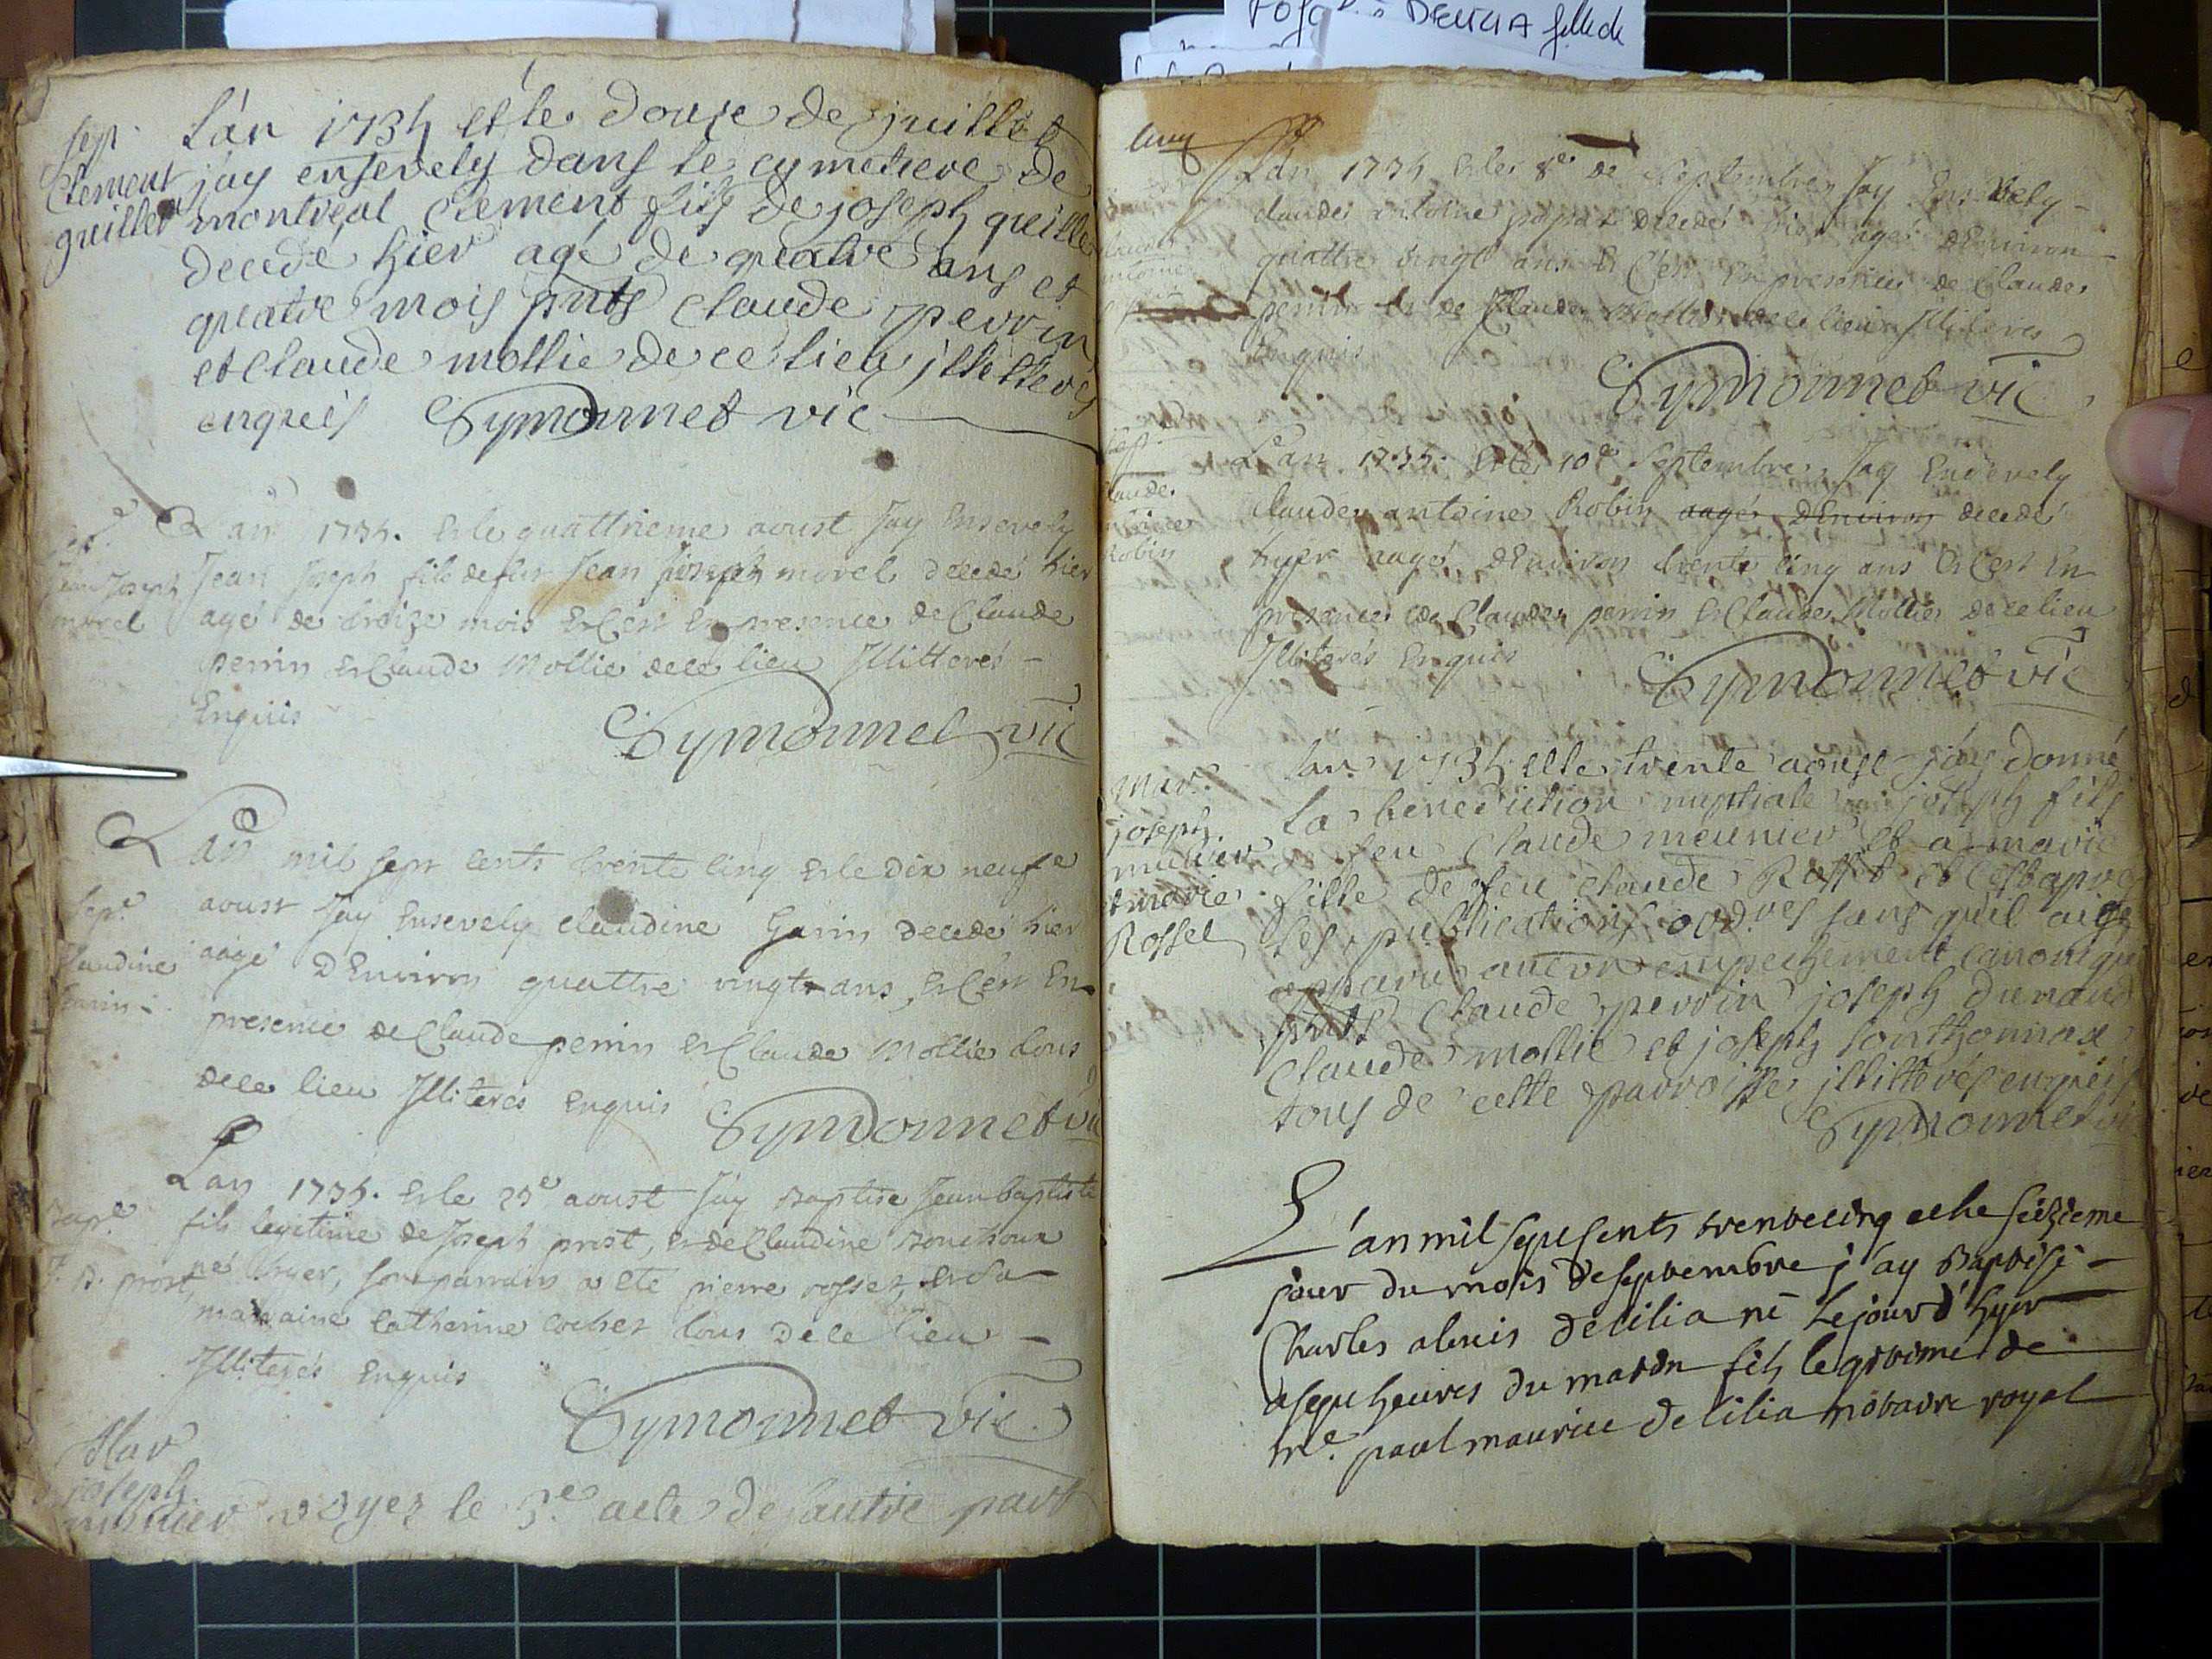 fosc DELILIA fille de
sep.
Clement
guillet
L'an 1735 et le douze de juillet
j'ay ensevely dans le cymetiere de
montreal Clement fils de joseph guillet
decedé hier agé de quatre ans et
quatre mois pnts Claude perrin
et Claude mollie de ce lieu jllitteres
enquis Symonnet vic
sep.e
Jean Joseph
morel
L'an 1735. Et le quattrieme aoust Jay Ensevely
Jean Joseph fils de feu Jean Joseph morel decedé hier
agé de treize mois Et C'est En presence de Claude
perrin Et Claude Mollie de ce lieu Jllitterés
Enquis
Symonnet vic
Sep.e
Claudine
Garin
L'an mil sept cents trente cinq Et le dix neufe
aoust Jay Ensevely Claudine Garin decedé hier
aagé D'Environ quattre vingt ans, Et C'est En
presence de Claude perrin Et Claude Mollie tous
de ce lieu Jlliterés Enquis
Symonnet vic
Bap.e
J. B. prost
L'an 1735. Et le 23e aoust Jay Baptisé Jean baptiste
fils legitime de Joseph prost, Et de Claudine
né hyer, son parrain a eté pierre rosset, Et sa
marraine Catherine cochet tous de ce lieu
Jlliterés Enquis
Symonnet vic
Mar
joseph
munier voyez le 3.e acte de l'autre part
Claude
antoine
L'an 1735 Et le 8e de Septembre Jay Ensevely
claude antoine decedé hier agé d'Environ
quattre vingt ans Et C'est En presence de Claude
perrin Et de Claude Mollie de ce lieu Jlliteres
Enquis
Symonnet vic
sep.
Claude
antoine
Robin
L'an 1735. Et le 10e Septembre Jay Ensevely
claude antoine Robin aagé d'Environ decedé
hyer aagé d'Environ trente cinq ans Et C'est En
presence de Claude perrin Et Claude Mollie de ce lieu
Jlliterés Enquis
Symonnet vic
Mar.
joseph
munier
et marie
Rosset
L'an 1735 et le trente aoust j'ay donné
la benediction nuptiale a joseph fils
de feu Claude meunier et a marie
fille de feu claude Rosset et c'est apres
les publications ord.res sans qu'il aige
apparu aucun empechement canonique
pnts Claude perrin joseph durand
Claude mollie et joseph sonthonnax
tous de cette parroisse jllitterés enquis
Symonnet vic
L'an mil sept cents trente cinq et le seizieme
jour du mois de septembre j'ay Baptisé
Charles alexis delilia né le jour d'hyer
a sept heures du matin fils legitime de
me. paul maurice delilia notaire royal